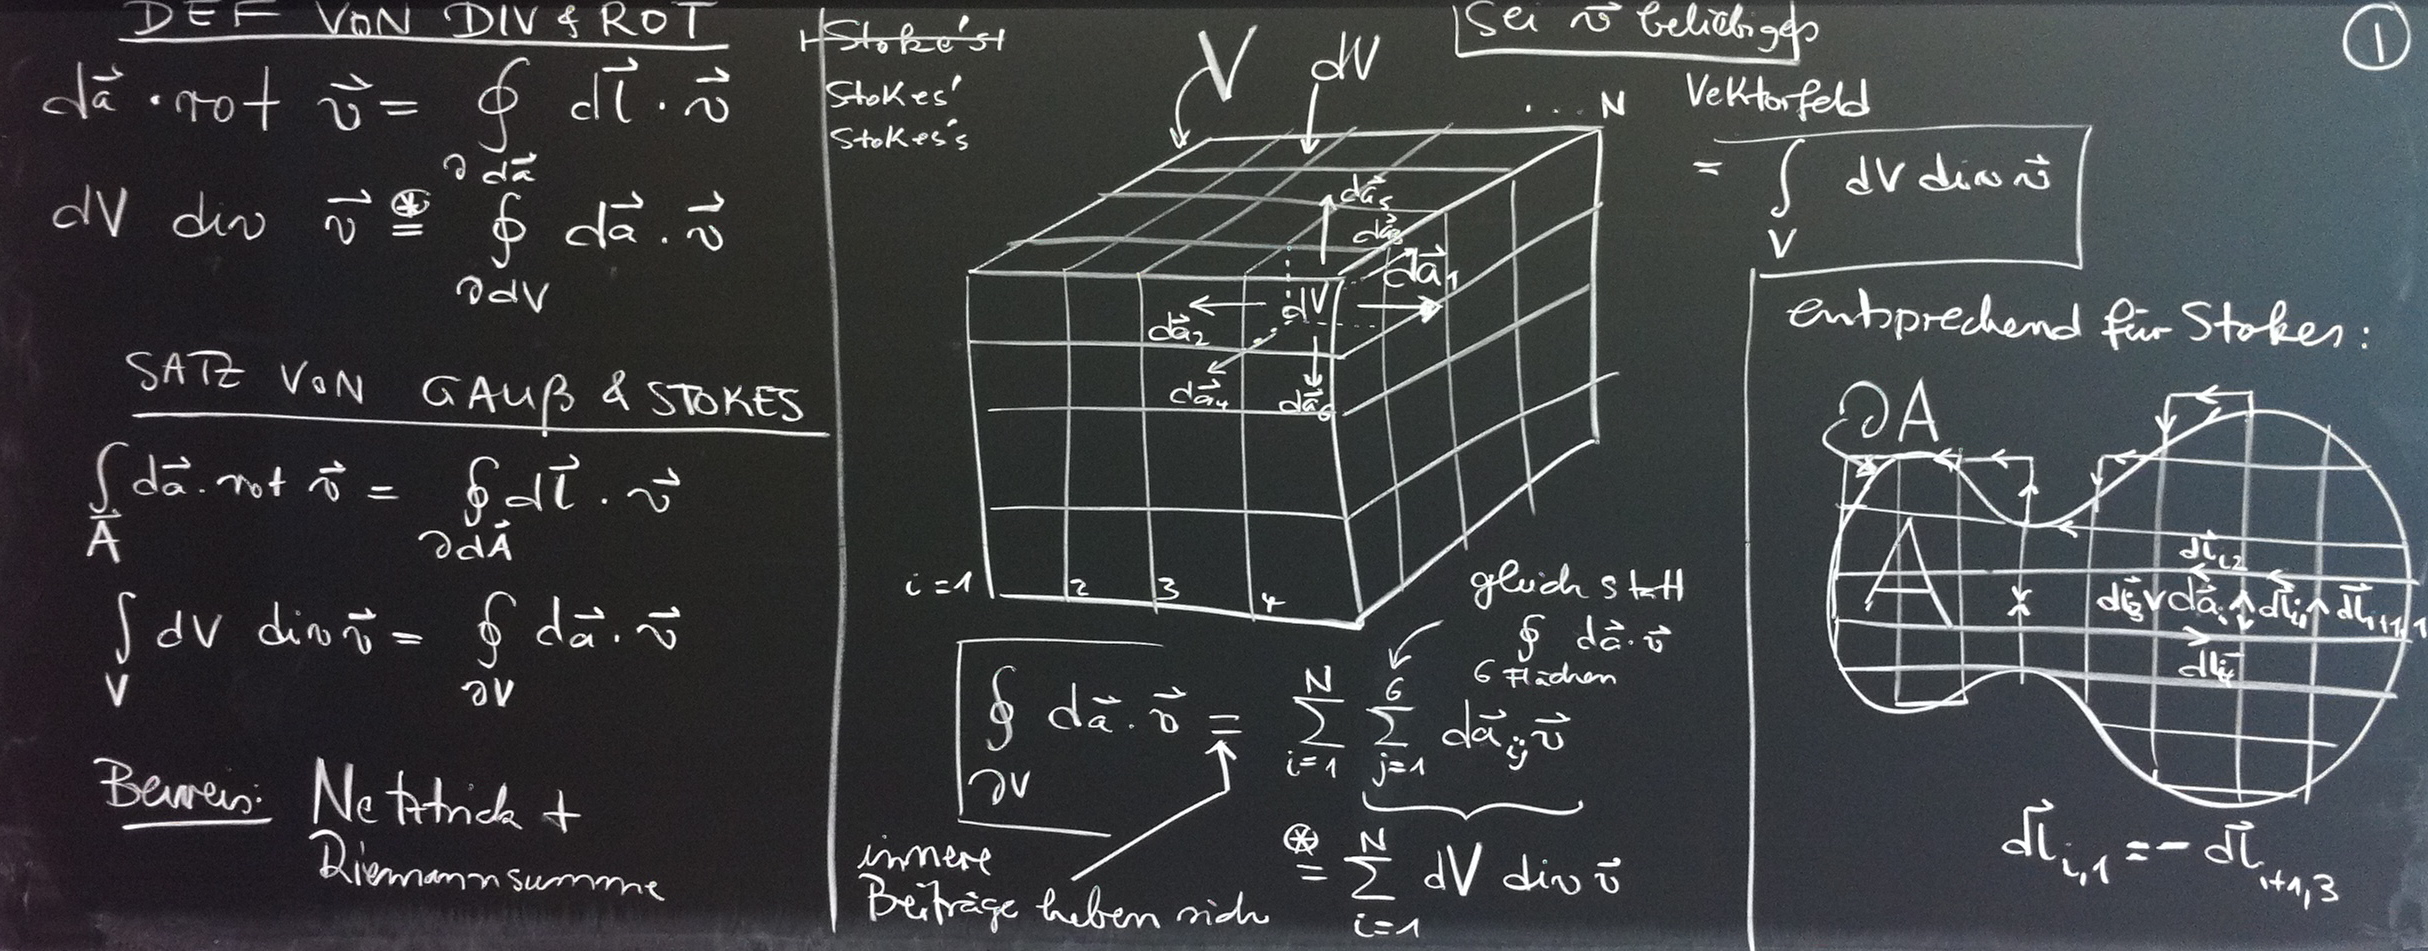 DEF VON DIV & ROT
da⃗ · rot v⃗ = ∮ dl⃗ · v⃗
∂da⃗
dV div v⃗ ⊛= ∮ da⃗ · v⃗
∂dV
SATZ VON GAUß & STOKES
∫ da⃗ · rot v⃗ = ∮ dl⃗ · v⃗
A ∂dA⃗
∫ dV div v⃗ = ∮ da⃗ · v⃗
V ∂V
Beweis: Netztrick +
Riemannsumme
Stoke's
Stokes'
Stokes's
V dV
... N
da⃗₅
da⃗₃
da⃗₁
dV
da⃗₂
da⃗₄ da⃗₆
i=1 2 3 4
gleich statt
∮ da⃗ · v⃗
6 Flächen
∮ da⃗ · v⃗ = N∑i=1 6∑j=1 da⃗ij v⃗
∂V
innere
Beiträge heben sich
⊛= N∑i=1 dV div v⃗
Sei v⃗ beliebiges
Vektorfeld
①
= ∫ dV div v⃗
V
entsprechend für Stokes:
∂A
A
dl⃗i2
dl⃗i3 da⃗i dl⃗i1 dl⃗i+1,1
dl⃗i4
dl⃗i,1 = - dl⃗i+1,3